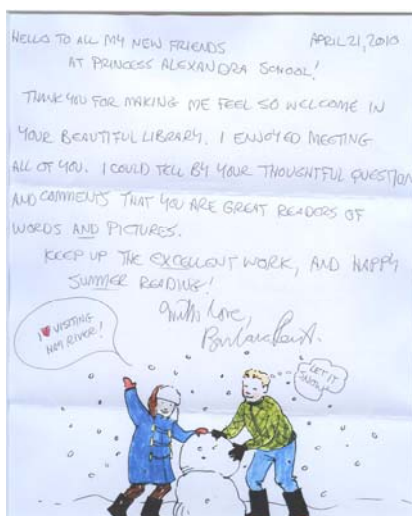 HELLO TO ALL MY NEW FRIENDS
APRIL 21, 2010
AT PRINCESS ALEXANDRA SCHOOL!
THANK YOU FOR MAKING ME FEEL SO WELCOME IN
YOUR BEAUTIFUL LIBRARY. I ENJOYED MEETING
ALL OF YOU. I COULD TELL BY YOUR THOUGHTFUL QUESTION
AND COMMENTS THAT YOU ARE GREAT READERS OF
WORDS AND PICTURES.
KEEP UP THE EXCELLENT WORK, AND HAPPY
SUMMER READING!
With Love,
Barbara
I ❤ VISITING
HAY RIVER!
LET IT
SNOW